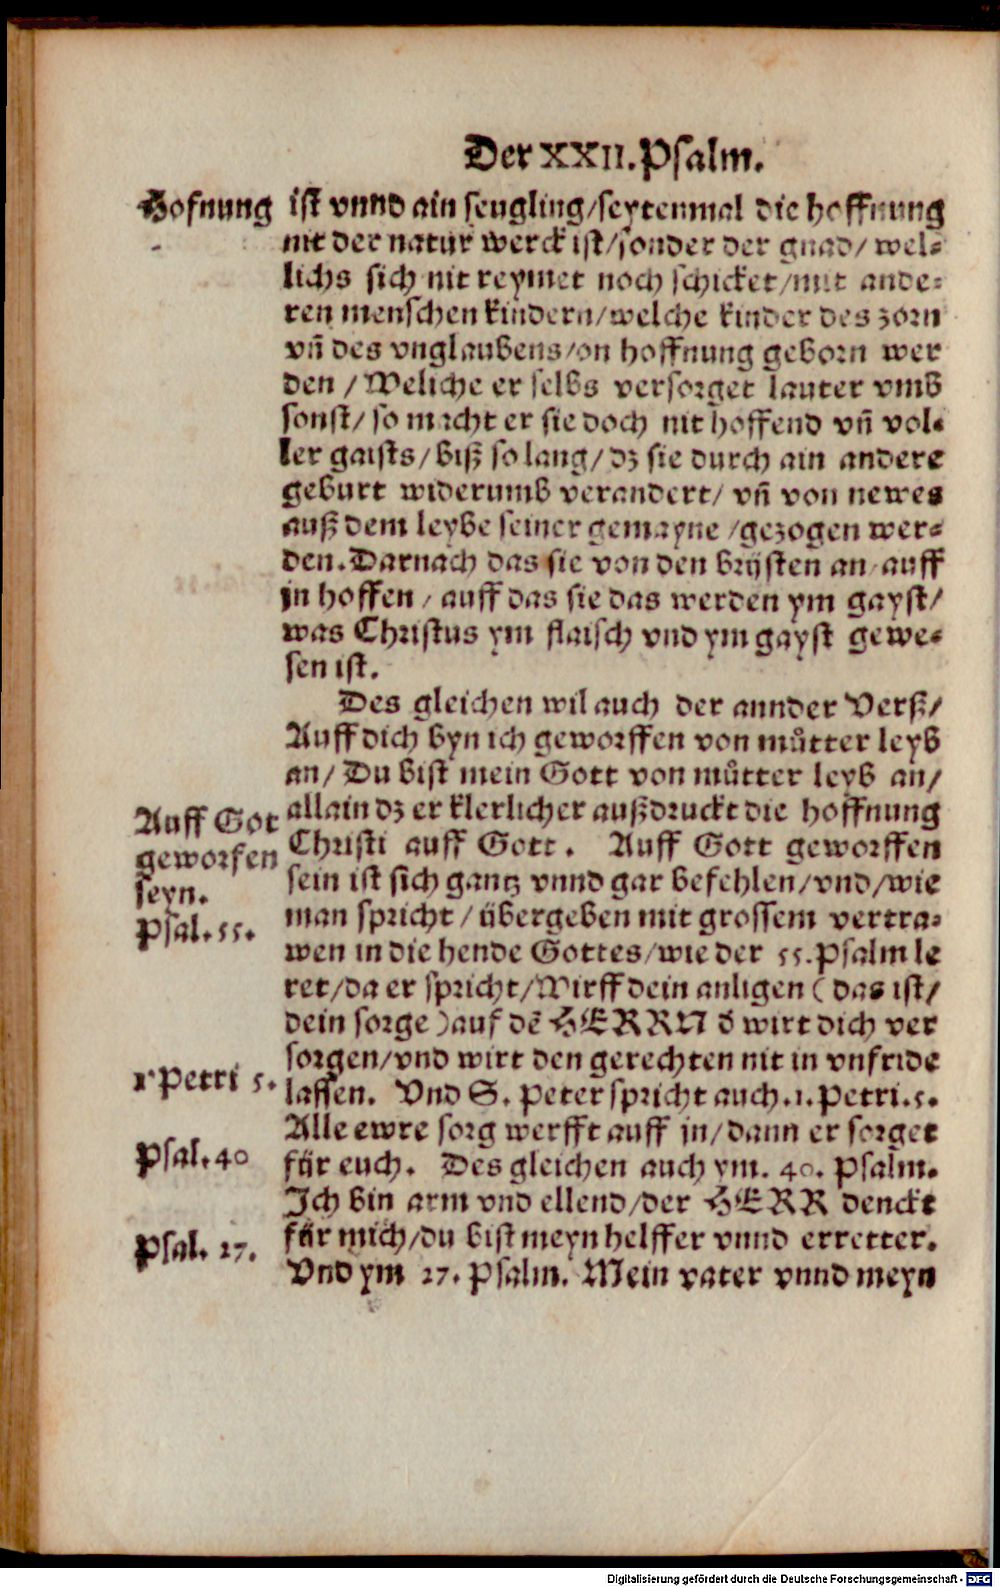 Der XXII. Psalm.
Hofnung
ist vnnd ain seugling/seytenmal die hoffnung
nit der natur werck ist/sonder der gnad/ wel-
lichs sich nit reymet noch schicket/mit ande-
ren menschen kindern/welche kinder des zorn
vñ des vnglaubens/on hoffnung geborn wer
den / Weliche er selbs versorget lauter vmb
sonst/ so macht er sie doch nit hoffend vñ vol-
ler gaists/ biß so lang/ dz sie durch ain andere
geburt widerumb verandert/ vñ von newes
auß dem leybe seiner gemayne /gezogen wer-
den. Darnach das sie von den brüsten an auff
jn hoffen / auff das sie das werden ym gayst/
was Christus ym flaisch vnd ym gayst gewe-
sen ist.
Des gleichen wil auch der annder Verß/
Auff dich byn ich geworffen von můtter leyb
an/ Du bist mein Gott von můtter leyb an/
allain dz er klerlicher außdruckt die hoffnung
Christi auff Gott. Auff Gott geworffen
sein ist sich gantz vnnd gar befehlen/vnd/wie
man spricht / übergeben mit grossem vertra-
wen in die hende Gottes/wie der 55. Psalm le
ret/da er spricht/Wirff dein anligen (das ist/
dein sorge) auf dē HERRN d̄ wirt dich ver
sorgen/vnd wirt den gerechten nit in vnfride
lassen. Vnd S. Peter spricht auch .1. Petri.5.
Alle ewre sorg werfft auff jn/dann er sorget
für euch. Des gleichen auch ym. 40. Psalm.
Ich bin arm vnd ellend/der HERR denckt
für mich/du bist meyn helffer vnnd erretter.
Vnd ym 27. Psalm. Mein vater vnnd meyn
Auff Got
geworfen
seyn.
Psal.55.
1 Petri 5.
Psal.40
Psal. 27.
Digitalisierung gefördert durch die Deutsche Forschungsgemeinschaft - DFG